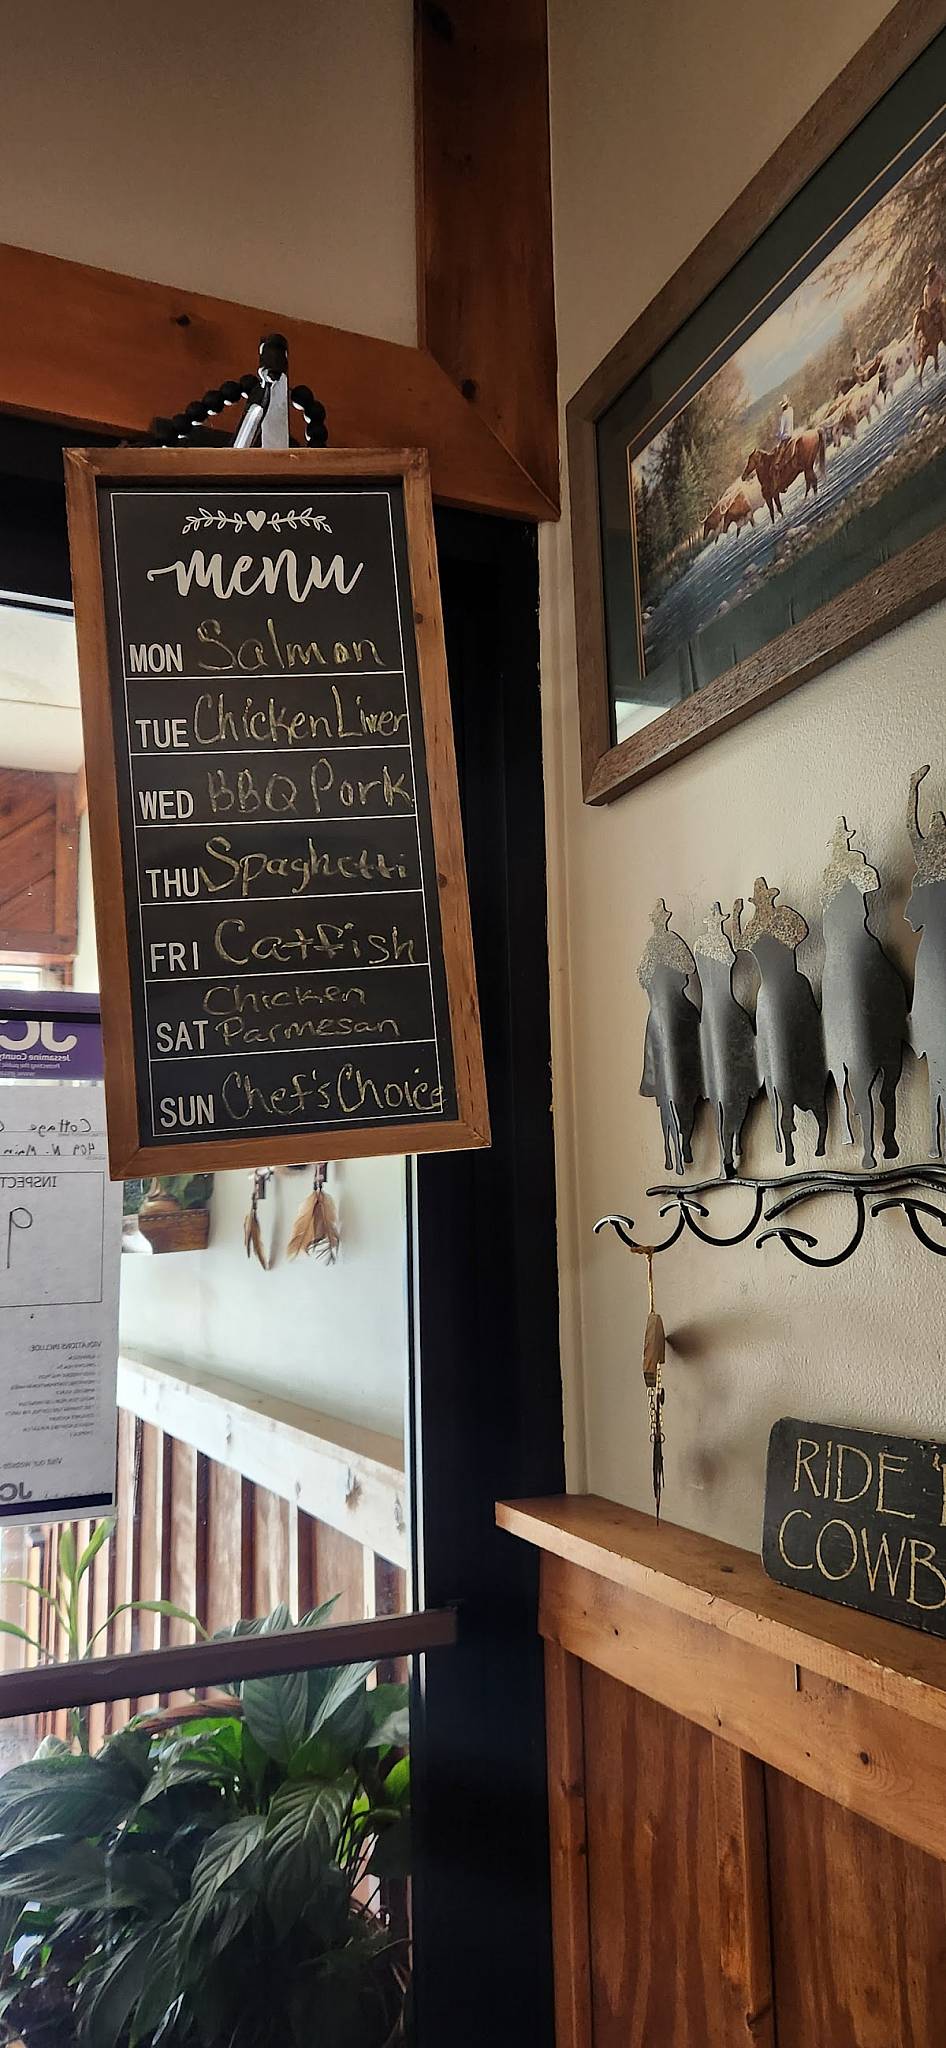 menu
MON Salmon
TUE Chicken Liver
WED BBQ Pork
THU Spaghetti
FRI Catfish
Chicken
SAT Parmesan
SUN Chef's Choice
JC
Jessamine County
Protecting the public
Cottage
409 N. Main
INSPECT
9
VIOLATIONS INCLUDE:
Visit our website
JC
RIDE
COWB